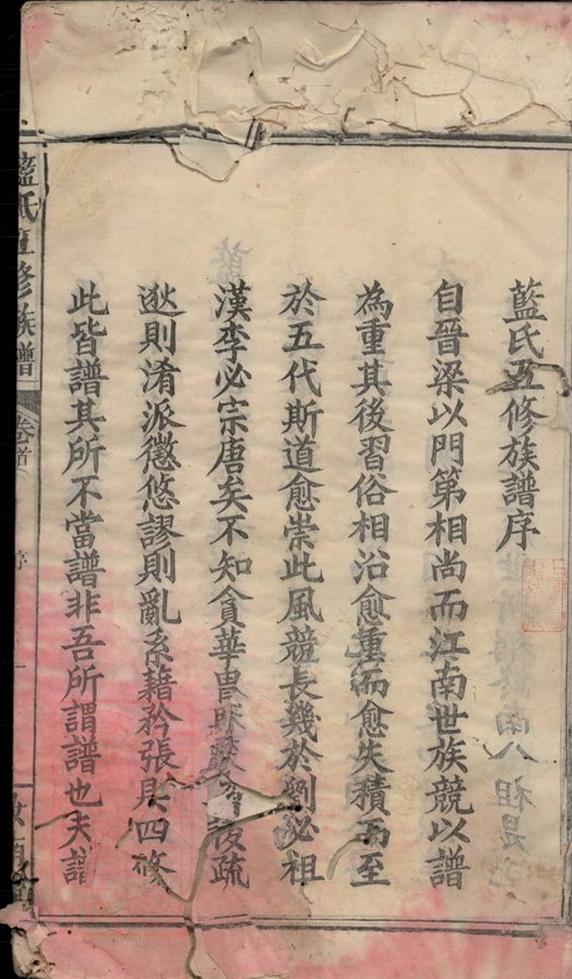 藍氏五修族譜序
自晉梁以門第相尚而江南世族競以譜
為重其後習俗相沿愈重而愈失積而至
於五代斯道愈崇此風競長幾於劉必祖
漢李必宗唐矣不知貪華冒後疏
逖則淆派懲悠謬則亂系藉矜張則四修
此皆譜其所不當譜非吾所謂譜也夫譜
藍氏五修族譜
卷首
序